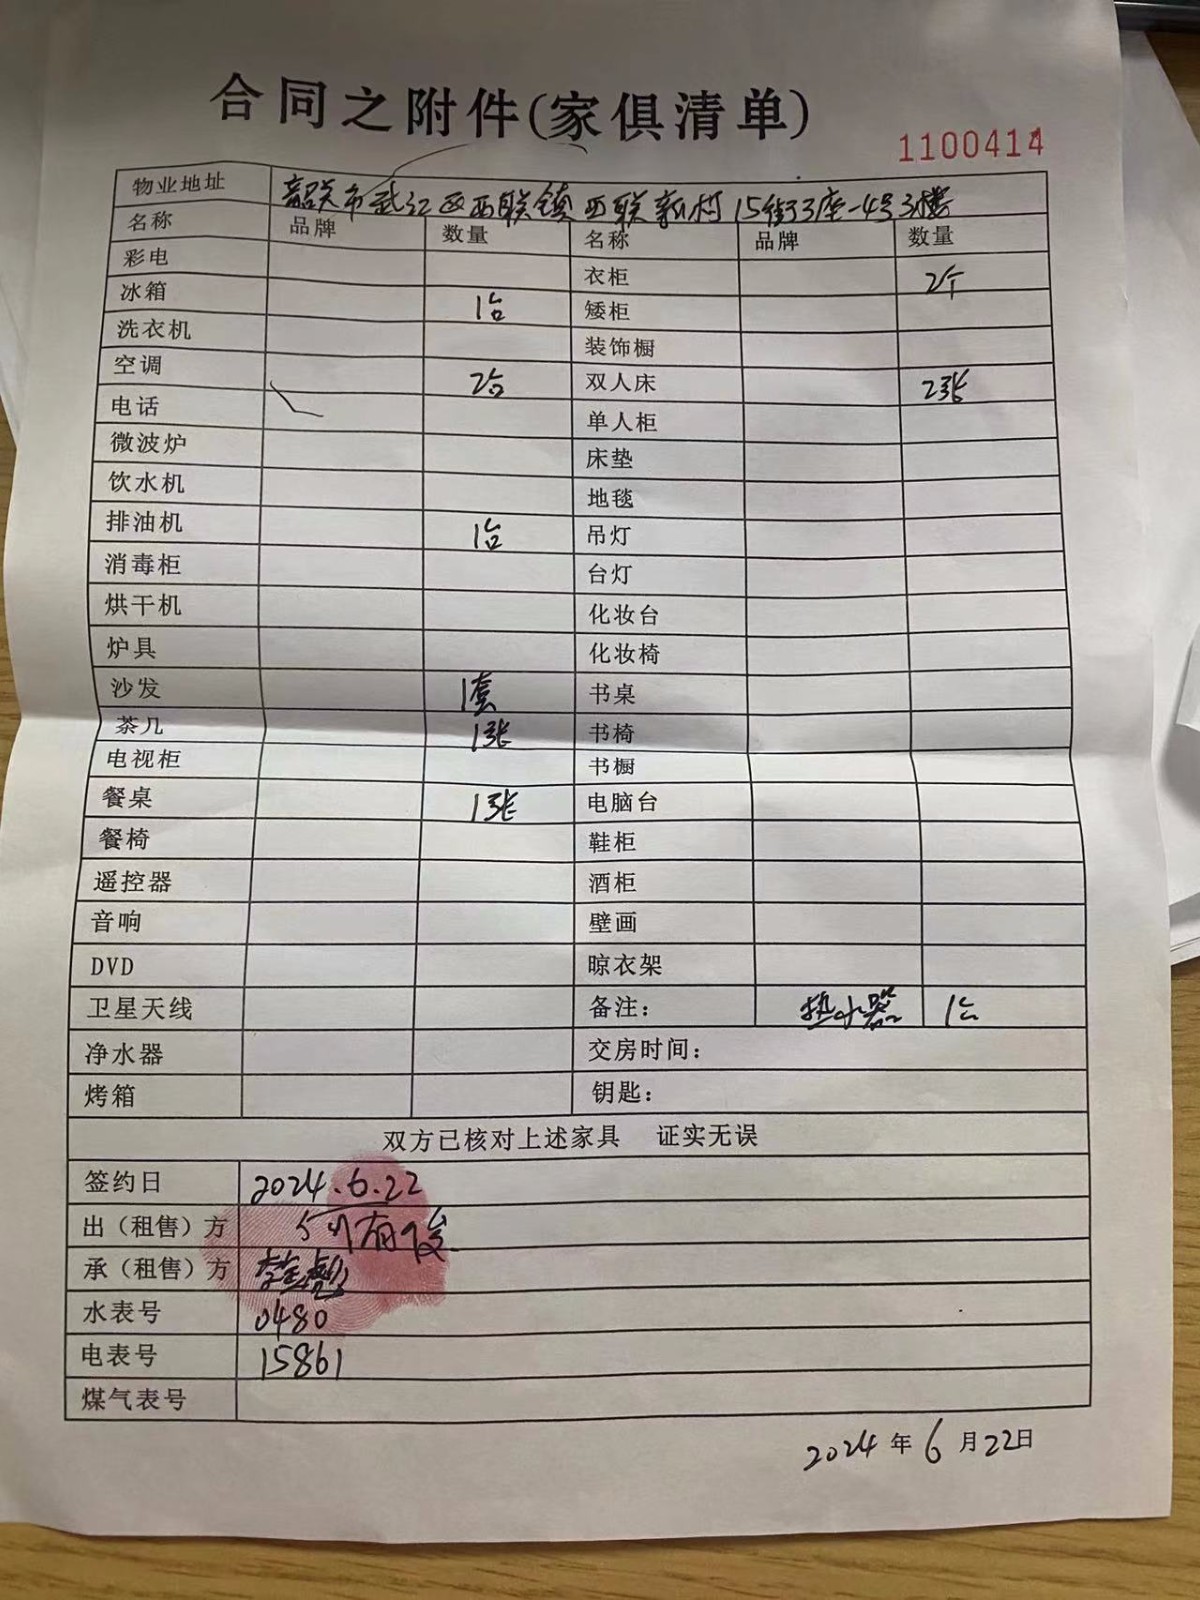 合同之附件(家俱清单)
1100414
物业地址 韶关市武江区西联镇西联新村15街3座-4号3楼
名称 品牌 数量 名称 品牌 数量
彩电 衣柜 2个
冰箱 1台 矮柜
洗衣机 装饰橱
空调 2台 双人床 2张
电话 单人柜
微波炉 床垫
饮水机 地毯
排油机 1台 吊灯
消毒柜 台灯
烘干机 化妆台
炉具 化妆椅
沙发 1套 书桌
茶几 1张 书椅
电视柜 书橱
餐桌 1张 电脑台
餐椅 鞋柜
遥控器 酒柜
音响 壁画
DVD 晾衣架
卫星天线 备注： 热水器 1台
净水器 交房时间：
烤箱 钥匙：
双方已核对上述家具 证实无误
签约日 2024.6.22
出（租售）方
承（租售）方
水表号 0480
电表号 15861
煤气表号
2024年6月22日